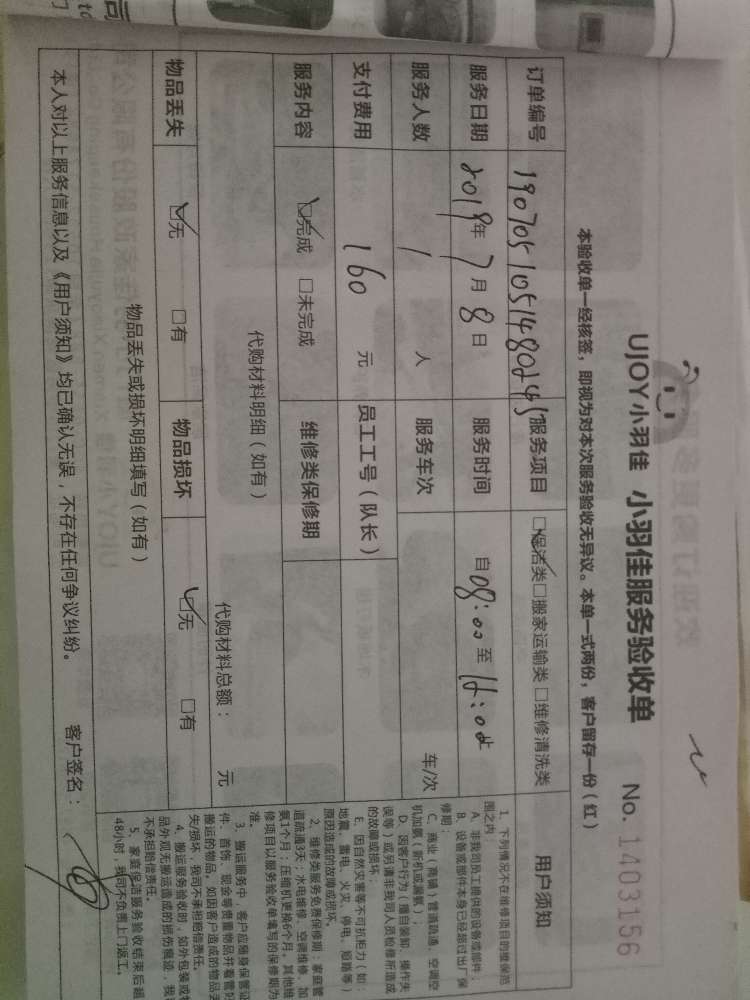 UJOY小羽佳 小羽佳服务验收单 No. 1403156
本验收单一经核签，即视为对本次服务验收无异议。本单一式两份，客户留存一份（红）
订单编号 服务项目 ☑保洁类 □搬家运输类 □维修清洗类
服务日期 2019年7月8日 服务时间 自08:00至
服务人数 1 人 服务车次 车/次
支付费用 160 元 员工工号（队长）
服务内容 ☑完成 □未完成 维修类保修期
代购材料明细（如有）
代购材料总额： 元
物品丢失 ☑无 □有 物品损坏 ☑无 □有
物品丢失或损坏明细填写（如有）
本人对以上服务信息以及《用户须知》均已确认无误，不存在任何争议纠纷。 客户签名：
用户须知
1、下列情况不在维修项目的维保范
围之内
A、非我司员工提供的设备或部件；
B、设备或部件本身已经超过出厂保
修期；
C、商业（商铺）管道疏通，空调空
机加氨（新机或漏氨）；
D、因客户行为（擅自装卸、操作失
误等）或另请非我司人员检修所造成
的故障或损坏；
E、因自然灾害等不可抗拒力（如：
地震、雷电、火灾、停电、短路等）
原因造成的故障或损坏。
2、维修类服务免费保修期：家庭管
道疏通3天；水电维修、空调维修、加
氨1个月；压缩机更换6个月。其他维
修项目以服务验收单填写的保修期为
准。
3、搬运服务中，客户应随身保管证
件、首饰、现金等贵重物品并看管好
搬运的物品，如因客户造成的物品丢
失/损坏，我司不承担赔偿责任。
4、搬运服务验收时，如外包装或物
品外观无搬运造成的损伤痕迹，我司
不承担赔偿责任。
5、家庭保洁服务验收结束后超
48小时，我司不负责上门返工。